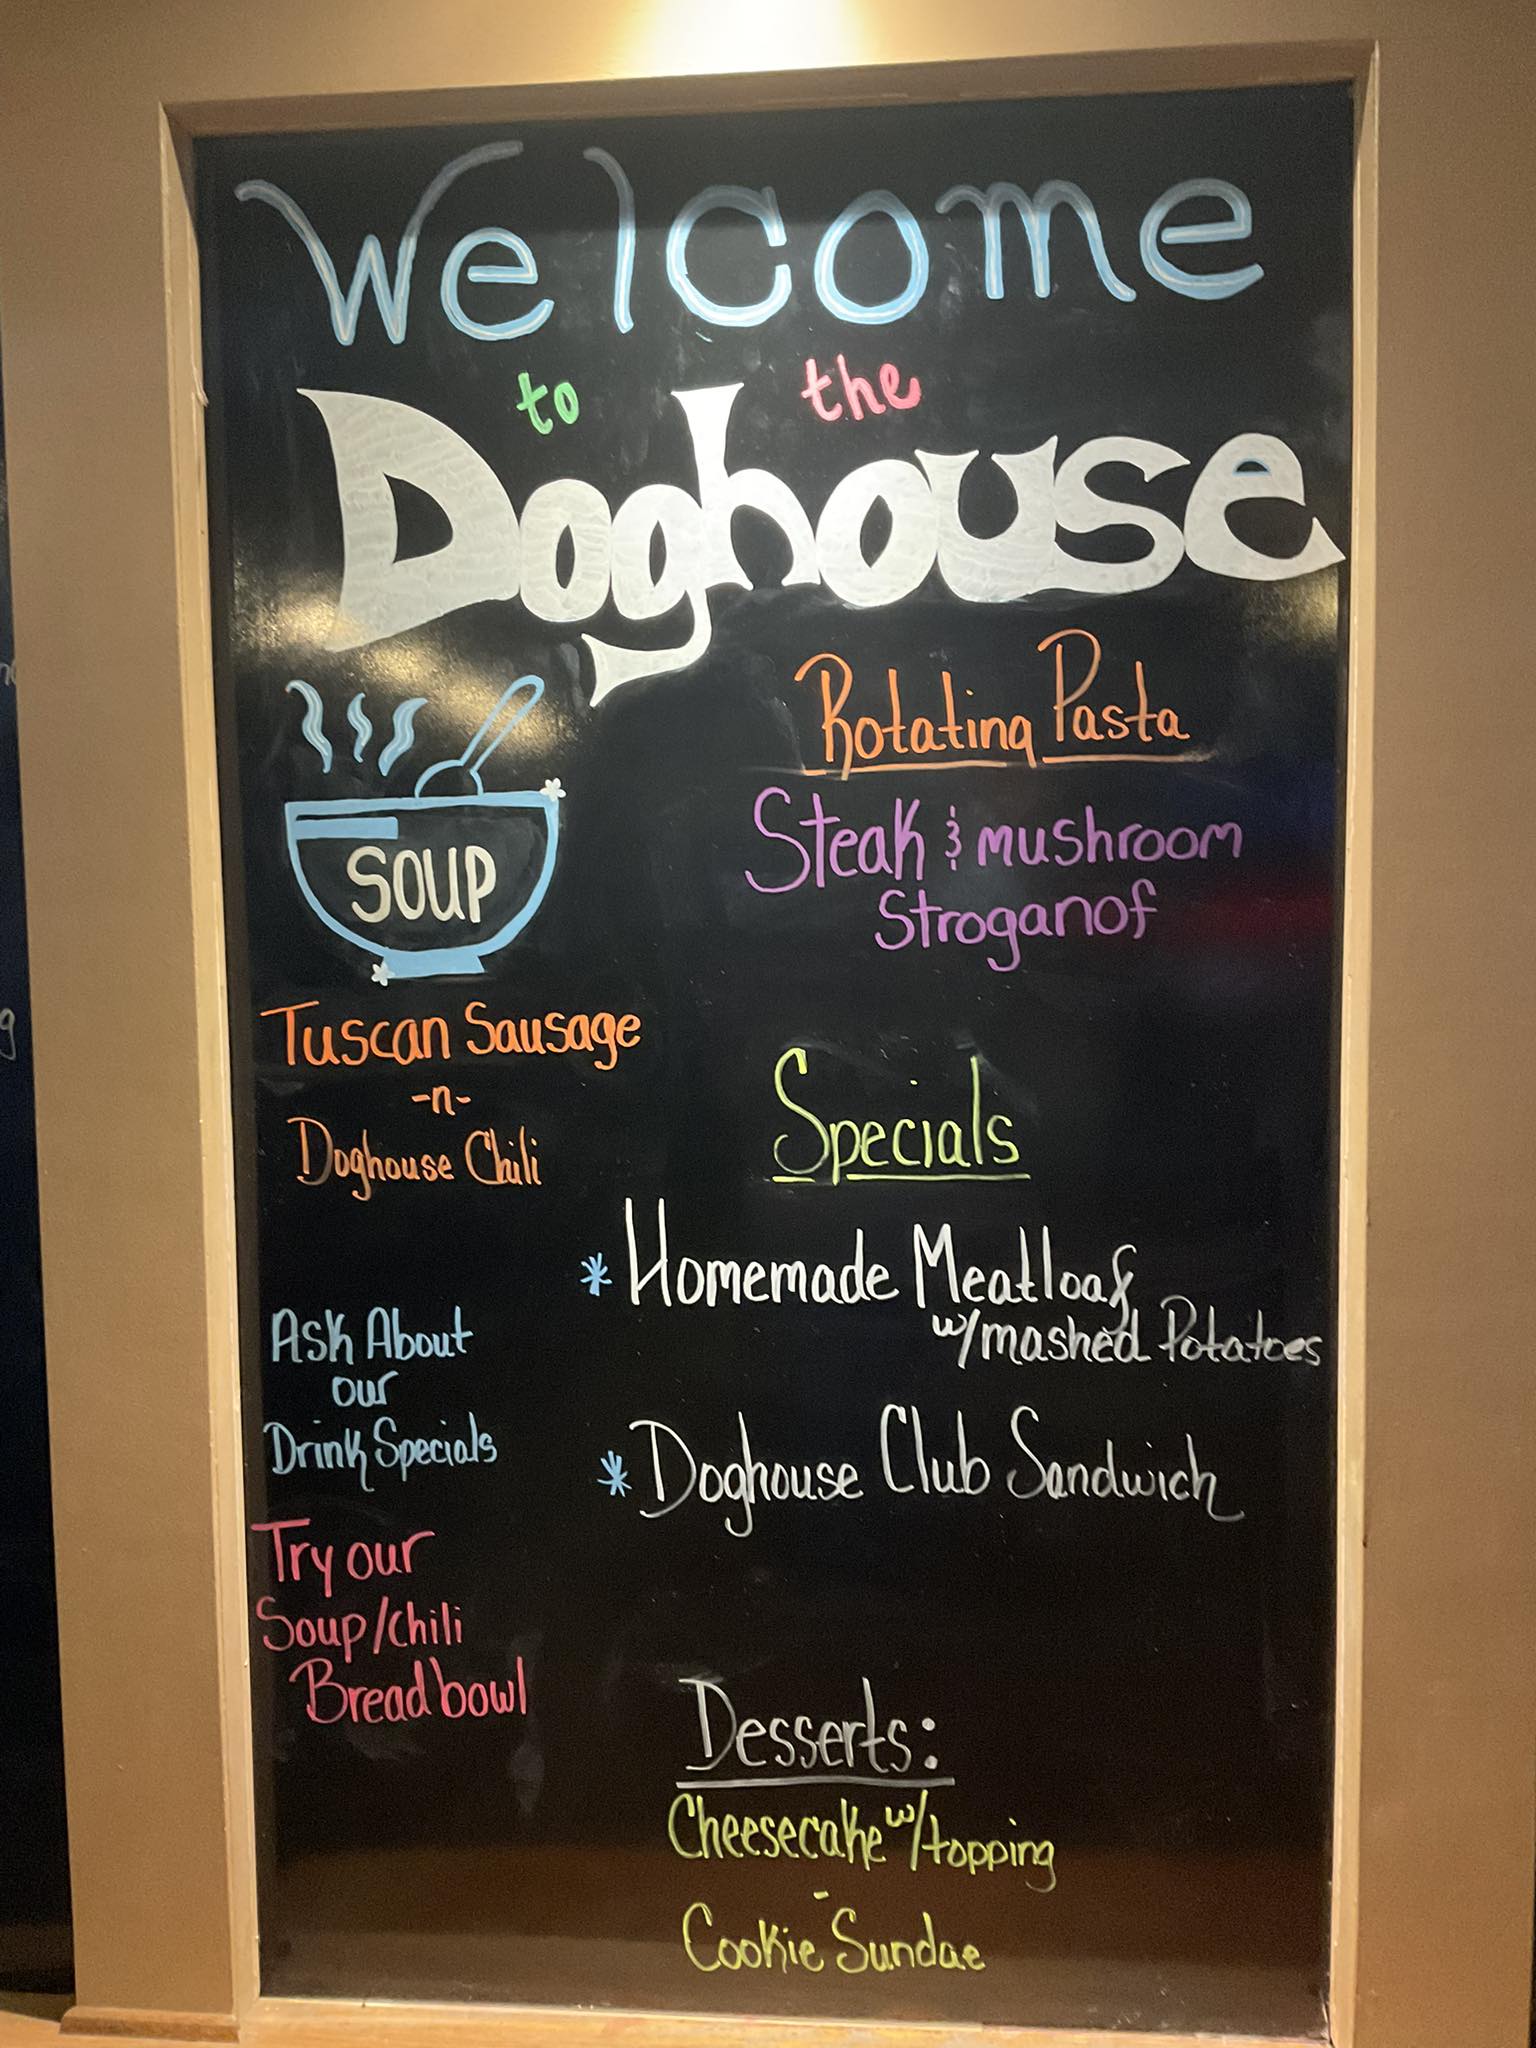 Welcome
to the
Doghouse
SOUP
Tuscan Sausage
-n-
Doghouse Chili
Ask About
our
Drink Specials
Try our
Soup/Chili
Bread bowl
Rotating Pasta
Steak & mushroom
Stroganof
Specials
* Homemade Meatloaf
w/mashed Potatoes
* Doghouse Club Sandwich
Desserts:
Cheesecake w/topping
-
Cookie Sundae